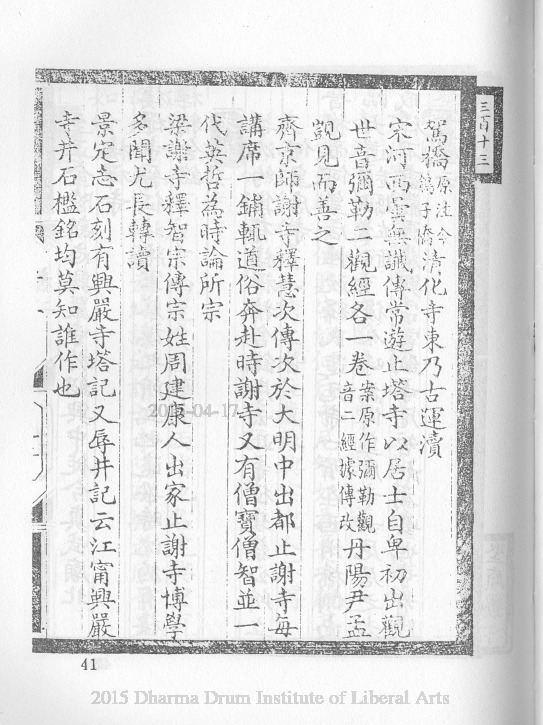 三百十三
鴛橋原注今鴿子橋清化寺東乃古運瀆
宋河西曇無讖傳常遊止塔寺以居士自卑初出觀
世音彌勒二觀經各一卷案原作彌勒觀音二經據傳改丹陽尹孟
顗見而善之
齊京師謝寺釋慧次傳次於大明中出都止謝寺每
講席一鋪輒道俗奔赴時謝寺又有僧寶僧智並一
代英哲為時論所宗
梁謝寺釋智宗傳宗姓周建康人出家止謝寺博學
多聞尤長轉讀
景定志石刻有興嚴寺塔記又辱井記云江甯興嚴
寺井石檻銘均莫知誰作也
41
2015-04-17
2015 Dharma Drum Institute of Liberal Arts